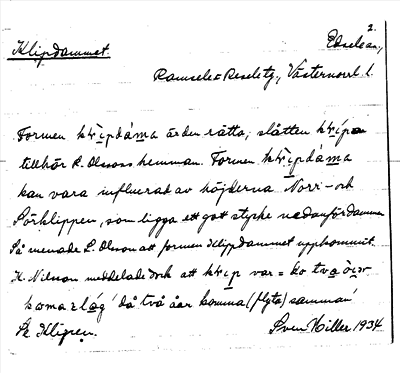 2.
Klipdammet. Edsele sn,
Ramsele o Resele tg., Västernorrl. l.
Formen klipdáma är den rätta, slåtten klípa
tillhör R. Olssons hemman. Formen klipdáma
kan vara influerad av höjderna Norr- och
Sörklippen, som ligga ett gott stycke nedanför dammen
Så menade L. Olsson att formen Klippdammet uppkommit.
K. Nilsson meddelade dock att klip var =
då två åar komma (flyta) samman
Se Klipen. Sven Hiller 1934